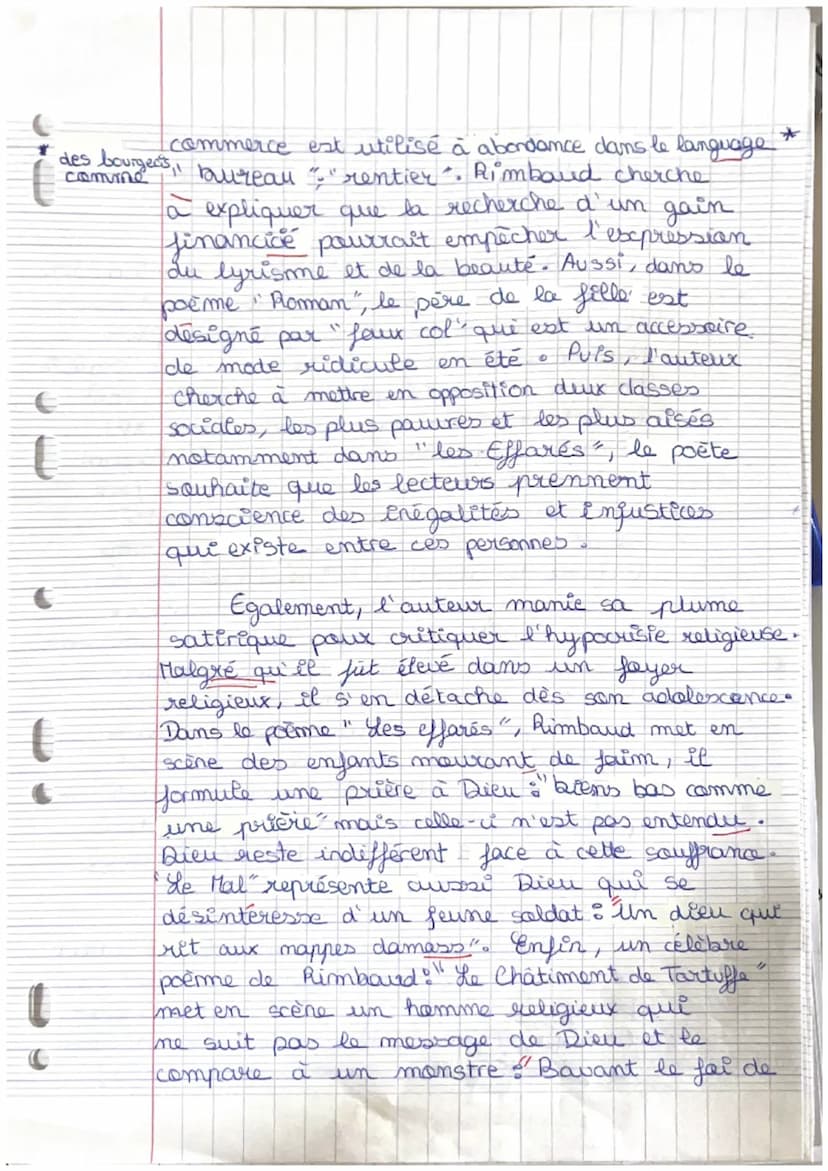 commerce est utilisé à abondance dans le language *
* des bourgeois
comme
"bureau", "rentier". Rimbaud cherche
à expliquer que la recherche d'un gain
financié pourrait empêcher l'expression
du lyrisme et de la beauté. Aussi, dans le
poème "Roman", le père de la fille est
désigné par "faux col" qui est un accessoire
de mode ridicule en été. Puis, l'auteur
cherche à mettre en opposition deux classes
sociales, les plus pauvres et les plus aisés
notamment dans "les Effarés", le poète
souhaite que les lecteurs prennent
conscience des inégalités et injustices
qui existe entre ces personnes.
Egalement, l'auteur manie sa plume
satirique pour critiquer l'hypocrisie religieuse.
Malgré qu'il fût élevé dans un foyer
religieux, il s'en détache dès son adolescence.
Dans le poème "Les effarés", Rimbaud met en
scène des enfants mourant de faim, il
formule une prière à Dieu : "biens bas comme
une prière" mais celle-ci n'est pas entendu.
Dieu reste indifférent face à cette souffrance.
"Le Mal" représente aussi Dieu qui se
désintéresse d'un jeune soldat : "Un dieu qui
rit aux nappes damass". Enfin, un célèbre
poème de Rimbaud : "Le Châtiment de Tartuffe"
met en scène un homme religieux qui
ne suit pas le message de Dieu et le
compare à un monstre : "Bavant le foi de